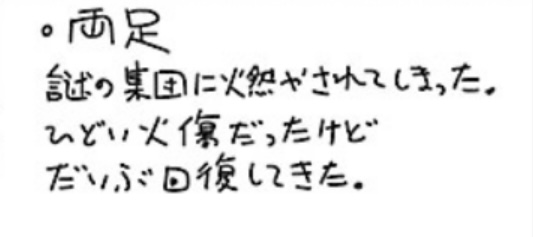 。両足
謎の集団に燃やされてしまった。
ひどい火傷だったけど
だいぶ回復してきた。